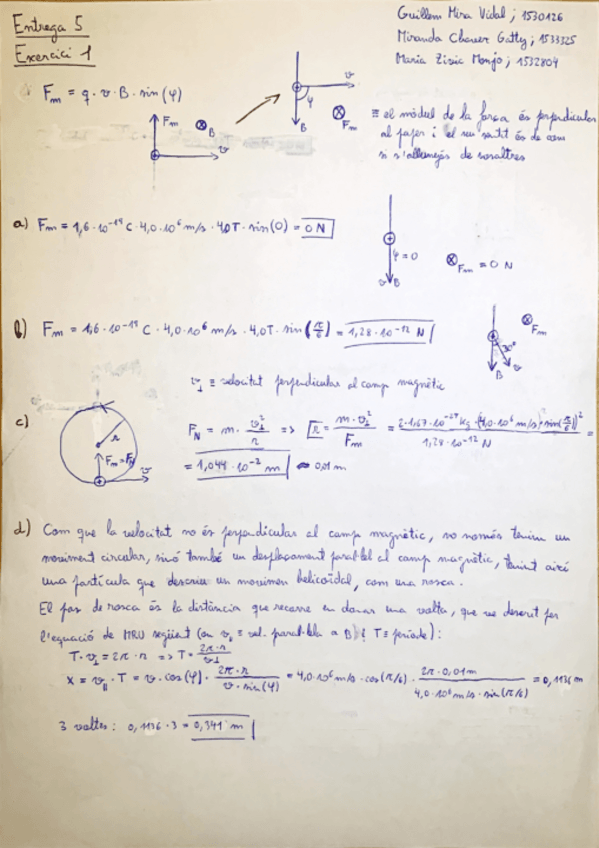 Entrega 5
Exercici 1
Guillem Mira Vidal; 1530126
Miranda Chaver Gatty; 1533325
Maria Monjo; 1532804
Fm = q · v · B · sin(φ)
Fm
B
v
v
φ
B
Fm
≡ el mòdul de la força és perpendicular
al paper i el seu sentit és de com
si s'allunyés de nosaltres
a) Fm = 1,6·10⁻¹⁹ C · 4,0·10⁶ m/s · 4,0T · sin(0) = 0 N
φ=0
v B
Fm = 0 N
b) Fm = 1,6·10⁻¹⁹ C · 4,0·10⁶ m/s · 4,0T · sin(π/6) = 1,28·10⁻¹² N
Fm
30°
B
v
v⊥ ≡ velocitat perpendicular al camp magnètic
c)
r
Fm=FN
v
FN = m · v⊥²/r => r = m·v⊥²/Fm = 2·1,67·10⁻²⁷ kg · (4,0·10⁶ m/s · sin(π/6))²/1,28·10⁻¹² N =
= 1,044·10⁻² m ≈ 0,01 m
d) Com que la velocitat no és perpendicular al camp magnètic, no només tenim un
moviment circular, sinó també un desplaçament paral·lel al camp magnètic, tenint així
una partícula que descriu un movimen helicoïdal, com una rosca.
El pas de rosca és la distància que recorre en donar una volta, que ve descrit per
l'equació de MRU següent (on v₁₁ ≡ vel. paral·lela a B) i T ≡ període):
T · v⊥ = 2π · r => T = 2π·r/v⊥
x = v₁₁ · T = v · cos(φ) · 2π·r/v·sin(φ) = 4,0·10⁶ m/s · cos(π/6) · 2π·0,01m/4,0·10⁶ m/s · sin(π/6) = 0,1136 m
3 voltes: 0,1136 · 3 = 0,341 m